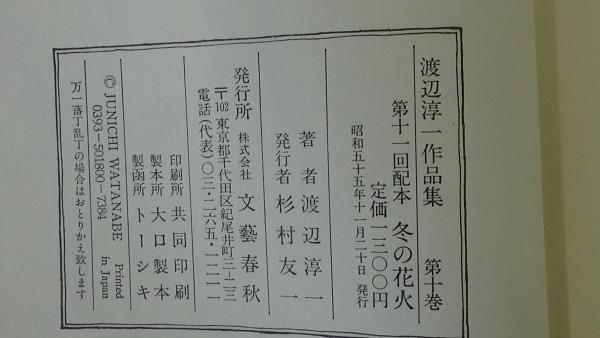 渡辺淳一作品集 第十巻
第十一回配本 冬の花火
定価一三〇〇円
昭和五十五年十一月二十日 発行
著者 渡辺淳一
発行者 杉村友一
発行所 株式会社 文藝春秋
〒102 東京都千代田区紀尾井町三―二三
電話(代表)〇三・二六五・一二一一
印刷所 共同印刷
製本所 大口製本
製函所 トーシキ
© JUNICHI WATANABE Printed in Japan
0393-501800-7384
万一落丁乱丁の場合はおとりかえ致します